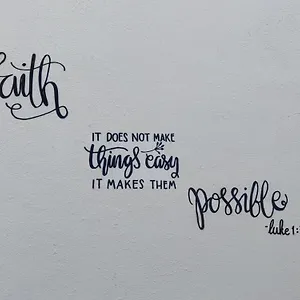 aith
IT DOES NOT MAKE
things easy
IT MAKES THEM
possible
-luke 1: